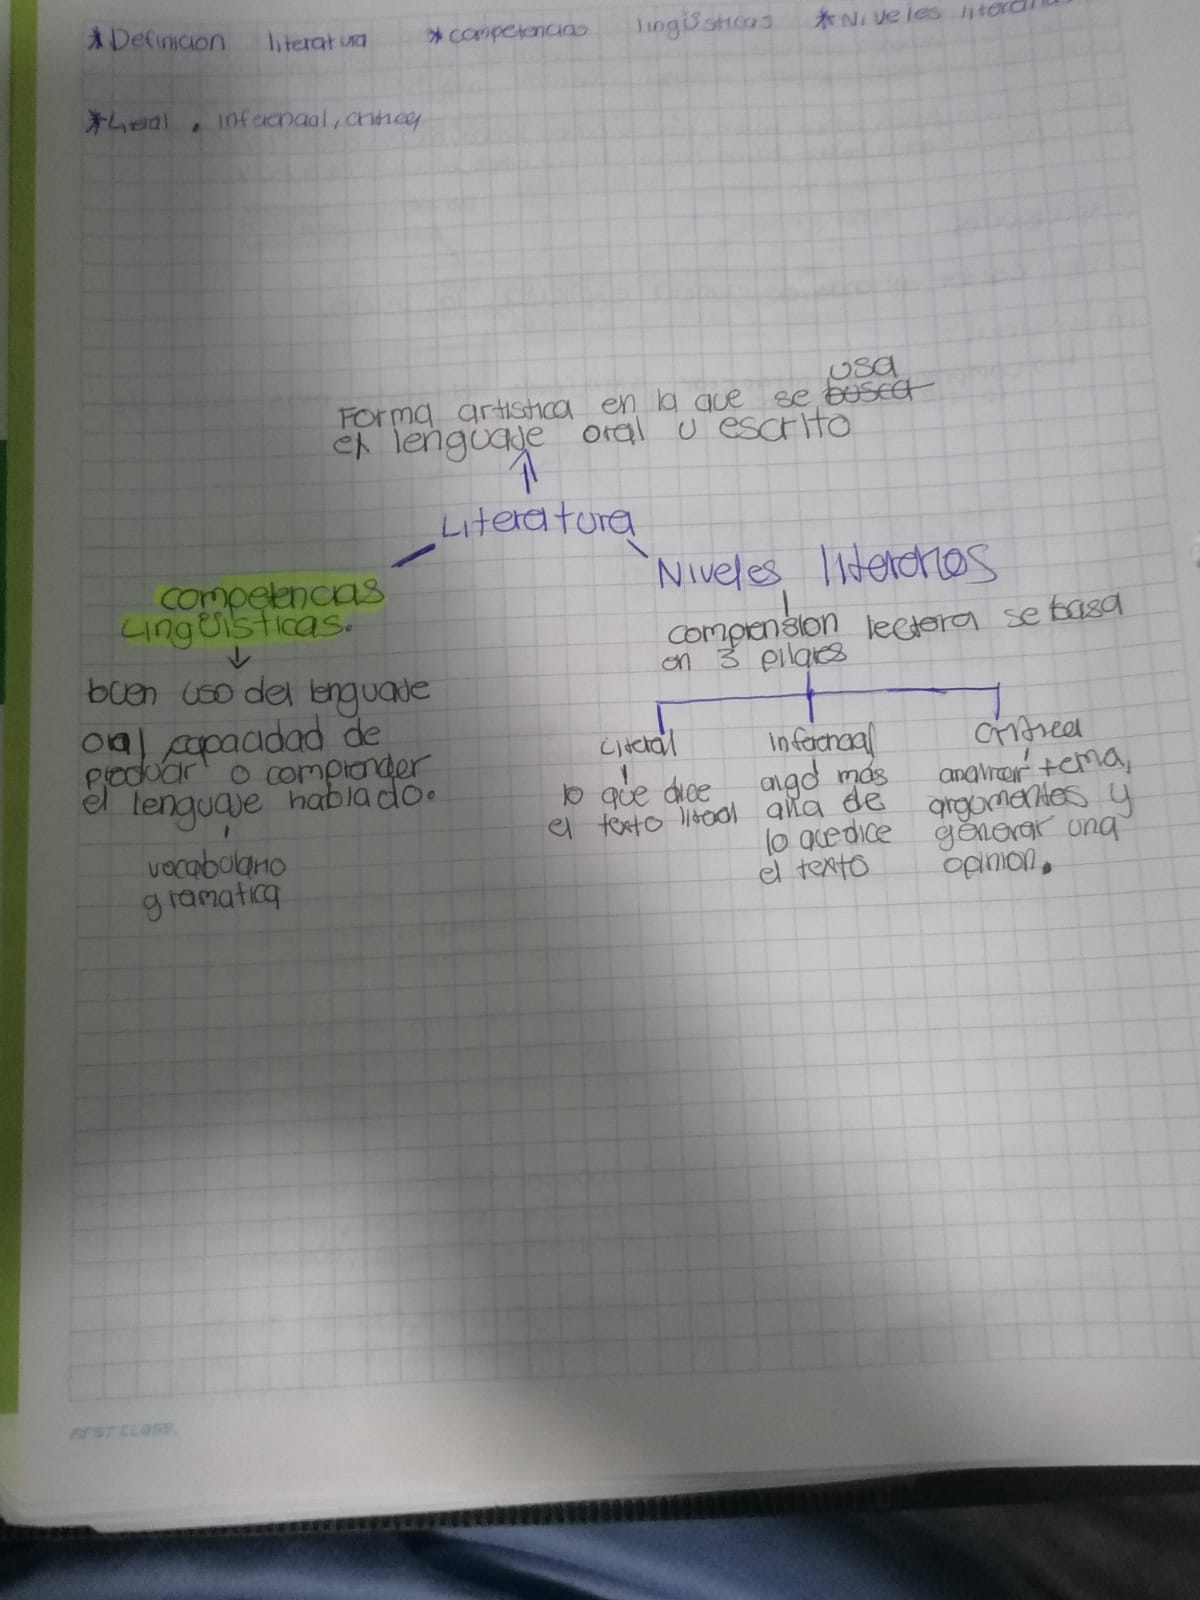 *Definicion literatura *competencias lingüisticas *Niveles
*Literal, inferencial, critica
usa
Forma artistica en la que se busca
el lenguaje oral u escrito
Literatura
Niveles literarios
competencias
Lingüisticas.
comprension lectora se basa
en 3 pilares
buen uso del lenguaje
oral capacidad de
producir o comprender
el lenguaje hablado.
vocabulario
gramatica
Literal
lo que dice
el texto literal
inferencial
algo más
alla de
lo que dice
el texto
critica
analizar tema,
argumentos y
generar una
opinion.
FIRST CLASS.